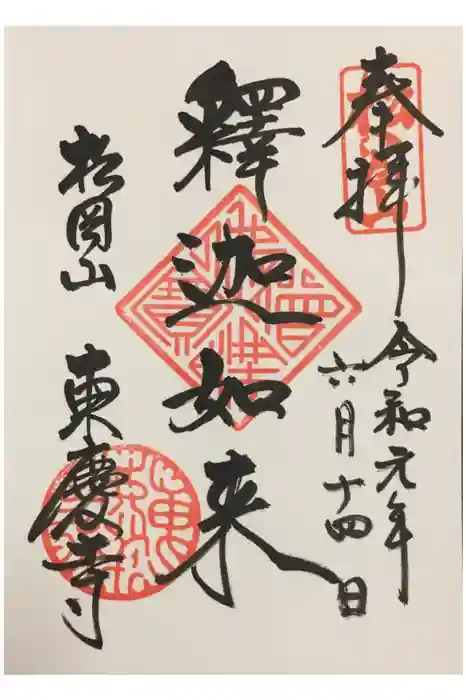 奉拝
令和元年
六月十四日
釋迦如来
松岡山
東慶寺